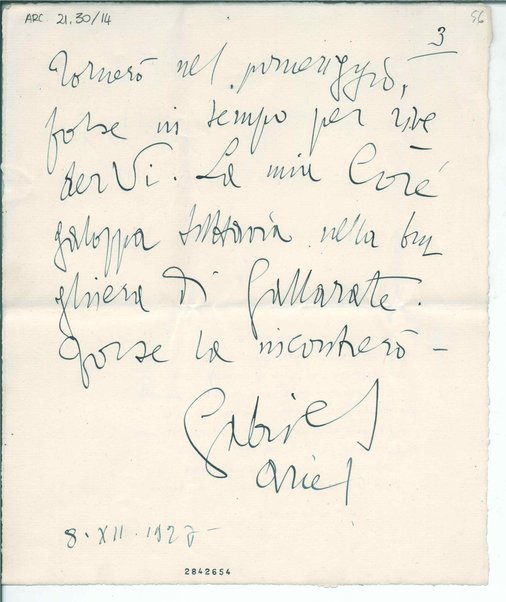 ARC 21.30/14
96
3
Tornerò nel pomeriggio,
forse in tempo per rive
derVi. La mia Corè
galoppa tuttavia nella bru
ghiera di Gallarate.
Forse la incontrerò –
Gabriel
Ariel
8. XII. 1927 –
2842654